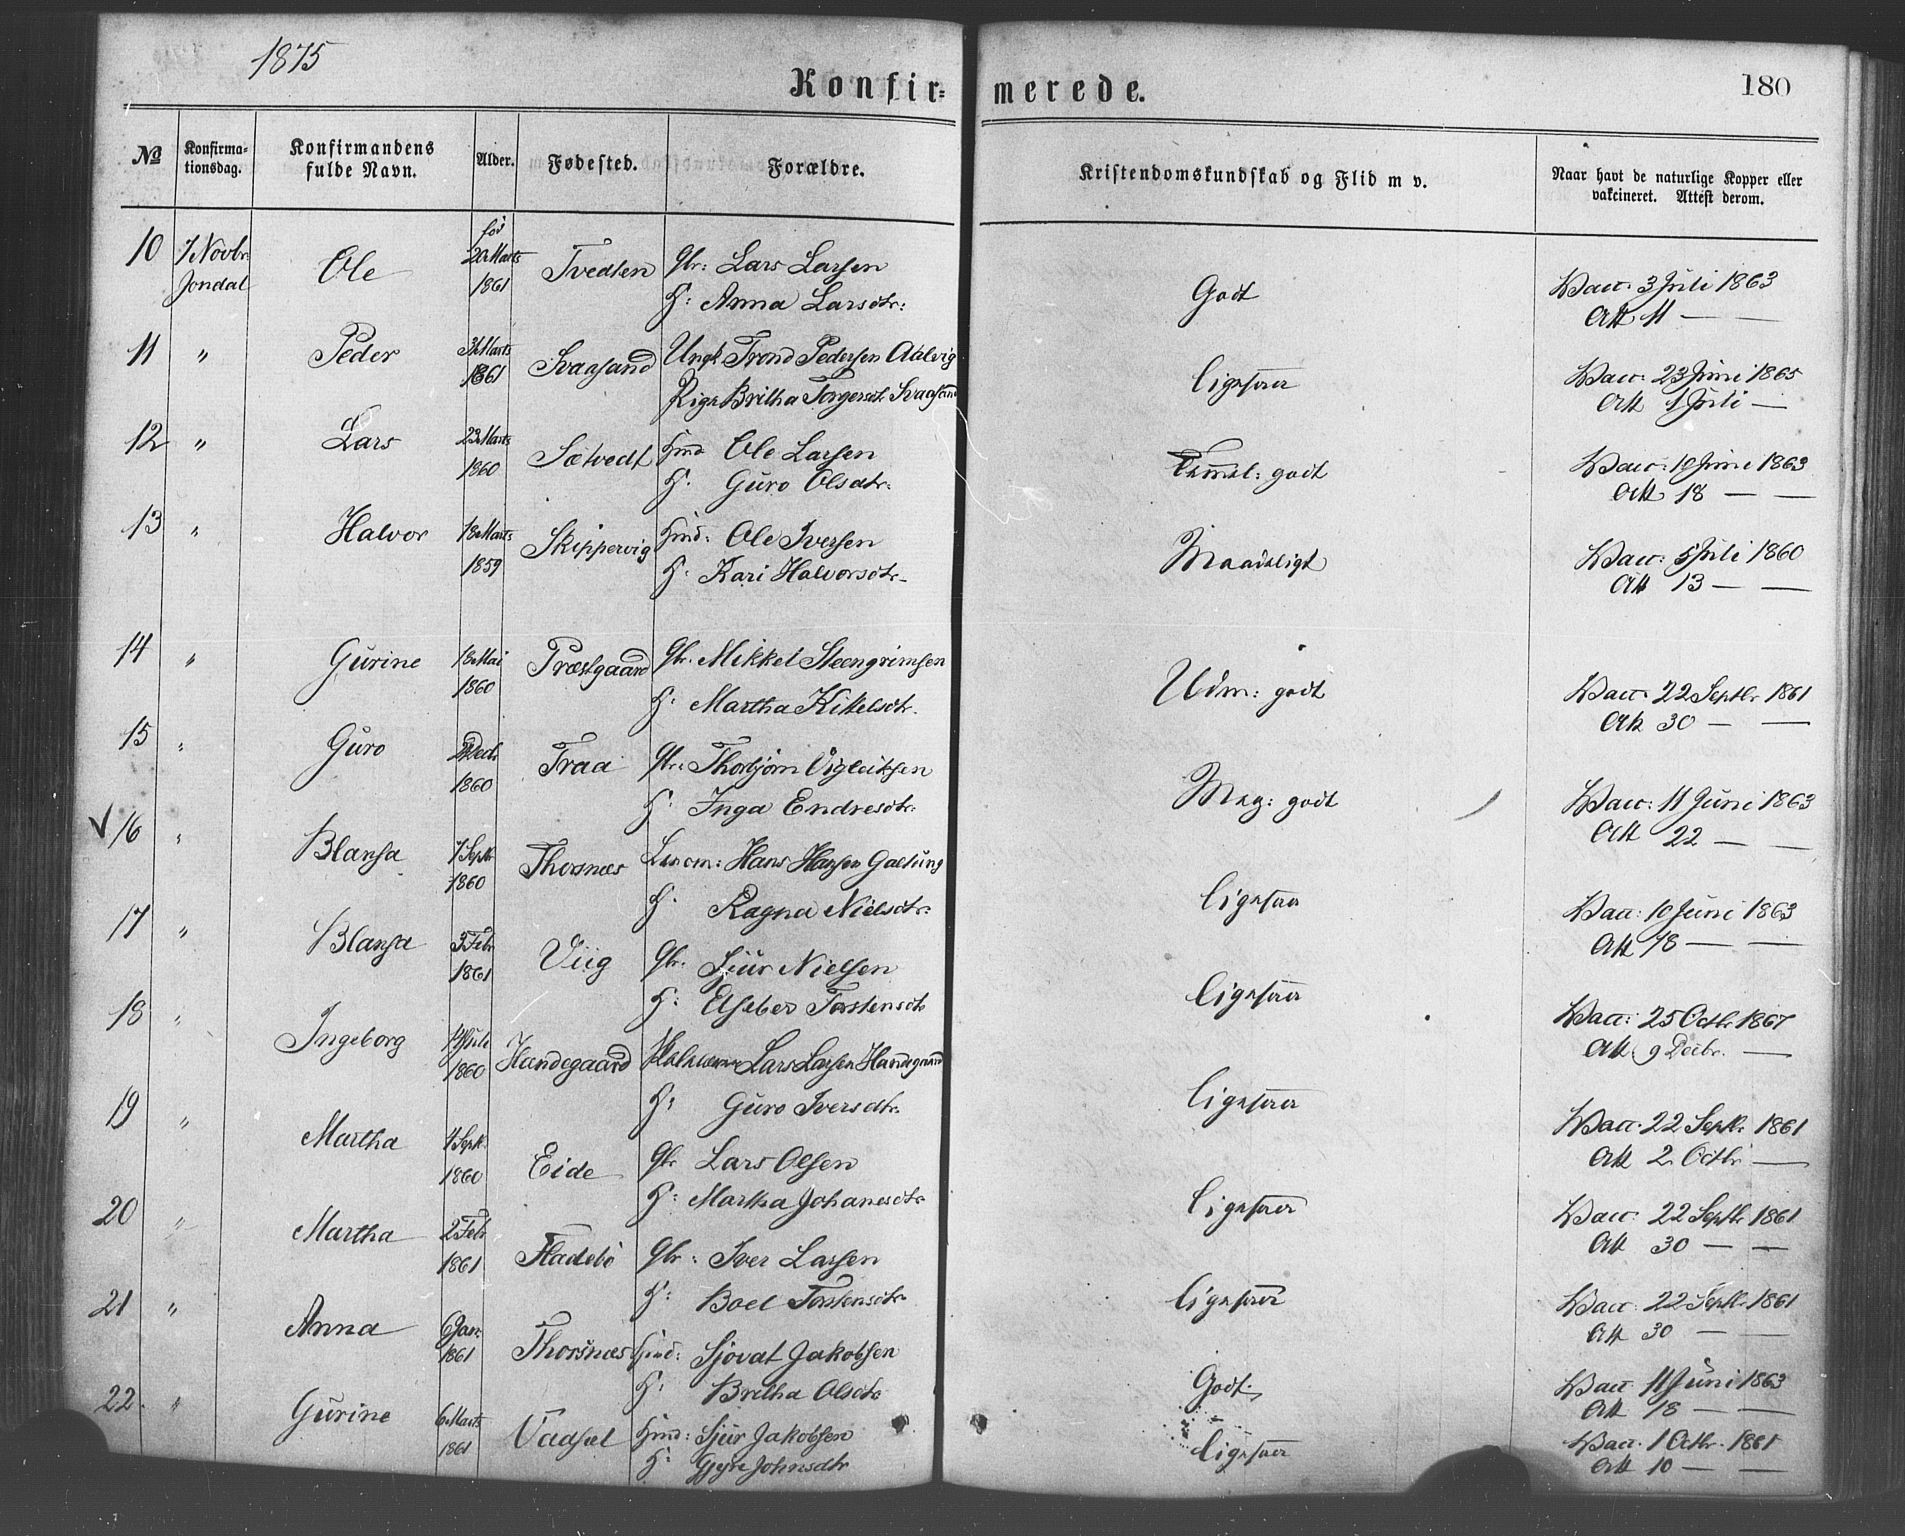 1875
Konfir= merede. 180
No Konfirma-tionsdag. Konfirmandens fulde Navn. Alder. Fødested. Forældre. Kristendomskundskab og Flid m v. Naar havt de naturlige Kopper eller vakcineret. Attest derom.
10 7 Novbr. Jondal Ole fød 20 Marts 1861 Tvedten Gbr: Lars Larsen Godt Vacc: 3 Juli 1863
H: Anna Larsdtr: Att 11 — —
11 " Peder 1861 Svaasand Ungk Trond Pedersen Aalvig Ligesaa Vacc: 23 Juni 1865
Pige Britha Torgersdt Svaasand Att 1 Juli —
12 " Lars 23 Marts 1860 Sætvedt Hmd Ole Larsen Temml: godt Vacc: 10 Juni 1863
H. Guro Olsdtr: Att 18 — —
13 " Halvor 18 Marts 1859 Skippervig Hmd: Ole Iversen Maadeligt Vacc: 5 Juli 1860
H. Kari Halvorsdtr. Att 13 — —
14 " Gurine 18 Mai 1860 Præstgaard Gbr. Mikkel Steengrimsen Udm: godt Vacc: 22 Septbr 1861
H: Martha Kikelsdtr. Att 30 — —
15 " Guro Decbr 1860 Traa Gbr: Thorbjørn Vigleiksen Meg: godt Vacc: 11 Juni 1863
H. Inga Endresdtr: Att 22 — —
16 " Blansa 7 Septbr 1860 Thorsnæs Hans Hansen Galtung Ligesaa Vacc: 10 Juni 1863
H. Ragna Nielsdtr: Att 18 — —
17 " Blansa 3 Febr 1861 Viig Gbr. Sjur Nielsen Ligesaa Vacc: 25 Octbr 1867
H: Elseber Torstensdtr Att 9 Decbr. —
18 " Ingeborg Juli 1860 Handegaard Lars Larsen Handegaard Ligesaa Vacc. 22 Septbr 1861
H: Guro Iversdtr. Att 2 Octbr —
19 " Martha Septbr. 1860 Eide Gbr Lars Olsen Ligesaa Vacc: 22 Septbr 1861
H: Martha Johanesdtr Att 30 — —
20 " Martha 2 Febr 1861 Fladebø Gbr: Iver Larsen Ligesaa Vacc: 22 Septbr 1861
H: Boel Torstensdtr Att 30 — —
21 " Anna 6 Jan: 1861 Thorsnæs Hmd: Sjovat Jakobsen Godt Vacc. 11 Juni 1863
H. Britha Olsdtr Att 18 — —
22. " Gurine 6 Marts 1861 Vaasel Hmd: Sjur Jakobsen Ligesaa Vacc. 1 Octbr. 1861
H. Gjyre Johnsdtr Att 10 — —